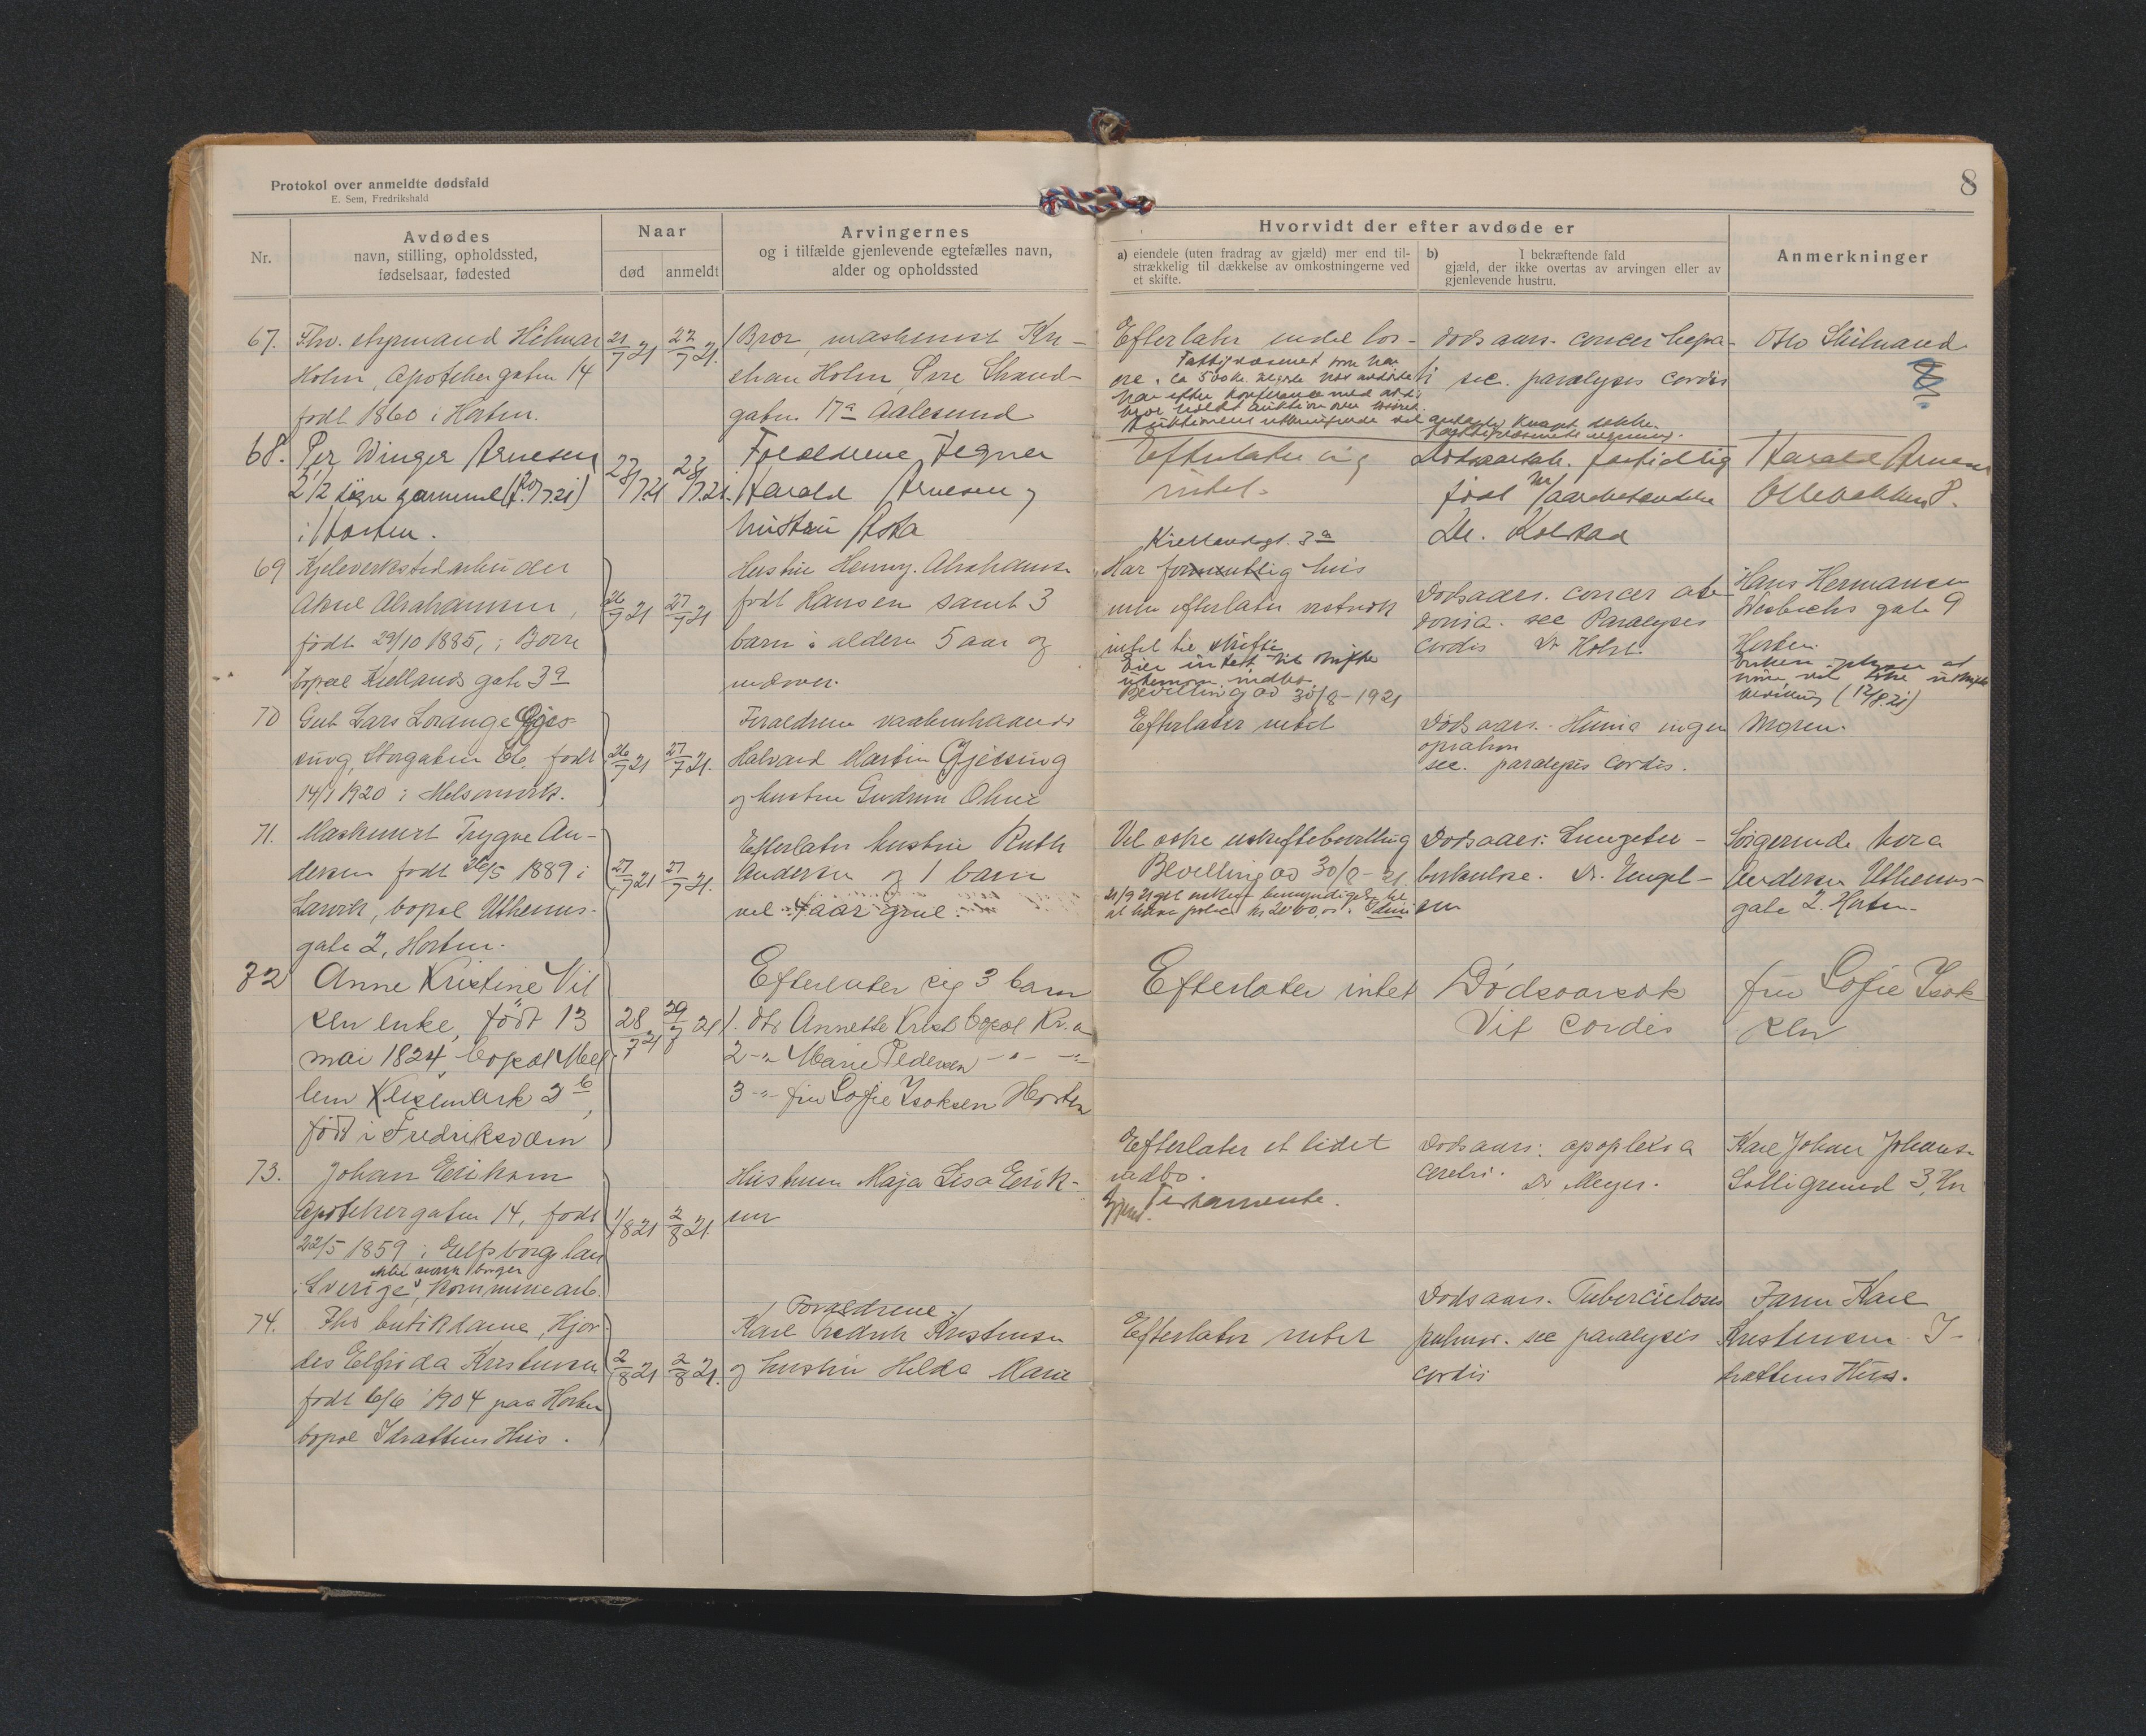 Protokol over anmeldte dødsfald
E. Sem, Fredrikshald
8
Nr.
Avdødes
navn, stilling, opholdssted,
fødselsaar, fødested
Naar
død
anmeldt
Arvingernes
og i tilfælde gjenlevende egtefælles navn,
alder og opholdssted
Hvorvidt der efter avdøde er
a) eiendele (uten fradrag av gjæld) mer end til-
strækkelig til dækkelse av omkostningerne ved
et skifte.
b) I bekræftende fald
gjæld, der ikke overtas av arvingen eller av
gjenlevende hustru.
Anmerkninger
67. Fhv. styrmand Hilmar
Holm, Apothekergaten 14
født 1860 i Horten.
21/7 21
22/7 21.
Bror, maskinist Kri-
stian Holm, Øvre Strand-
gaten 17a Aalesund
Efterlater endel løs-
øre.
Dødsaars. cancer hepa-
ti sec. paralysis cordis
Otto
68. Per Winger Arnesen
2 1/2 døgn gammel (f. 20/7 21)
i Horten.
23/7 21
23/7 21.
Forældrene
Harald Arnesen og
hustru Asta
Efterlater sig
intet.
Dødsaarsak. fortidlig
født
Dr. Kolstad
Harald Arnesen
Ollebakken 8.
69 Kjeleverkstedarbeider
Aksel Abrahamsen,
født 29/10 1885, i Borre
bopæl Kiellands gate 3a
26/7 21
27/7 21
Hustru Henny Abrahamsen
født Hansen samt 3
barn i alderen 5 aar og
nedover.
Kiellandsgt. 3a
Har formentlig hus
men efterlater
intet til skifte
Eier intet til skifte
utenom indbo.
Bevilling av 30/8-1921
Dødsaars. cancer
sec Paralysis
cordis Dr Holst.
Hans Hermansen
gate 9
Horten.
(12/8 21)
70 Gut Lars Lorange Gjes-
sing, Storgaten født
14/1 1920 i Melsomvik.
26/7 21
27/7 21.
Forældrene
Halvard Martin Gjessing
og hustru Gudrun
Efterlater intet
Dødsaars.
opration
sec. paralysis cordis.
Moren.
71. Maskinist Trygve An-
dersen født 26/5 1889 i
Larvik, bopæl Uthemns-
gate 2, Horten.
27/7 21
27/7 21.
Efterlater hustru Ruth
Andersen og 1 barn
4 aar
Vil søke uskiftebevilling
Bevilling av 30/8-21.
Dødsaars: Lungetu-
berkulose. Dr. Engel-
sen
Sørgerinde, Nora
Andersen Uthemns-
gate 2. Horten.
72 Anne Kristine Vil
sen enke, født 13
mai 1824, bopæl Mel
lem Keisemark 2b,
født i Fredriksværn
28/7 21
29/7 21
Efterlater sig 3 barn
1. dtr Annette Krist bopæl Kr.a
2 -"- Marie Pedersen -"- -"-
3 -"- fru Sofie Isaksen Horten
Efterlater intet
Dødsaarsak
Vit cordis
fru Sofie Isak
sen
73. Johan Erikson
Apothekergaten 14, født
22/5 1859 i Elfsborgs län
ikke norsk borger
i Sverige, kommunearb.
1/8 21
2/8 21.
Hustruen Maja Lisa Erik-
son
Efterlater et lidet
indbo.
Gjens. Testamente.
Dødsaars: apoplexia
cerebri. Dr Meyer.
Karl Johan Johansen
Solligrend 3, Hn
74. Fhv butikdame, Hjør
dis Elfrida Kristensen
født 6/6 1904 paa Horten
bopæl Idrættens Hus.
2/8 21
2/8 21.
Forældrene
Karl Fredrik Kristensen
og hustru Hilda Marie
Efterlater intet
Dødsaars. Tuberculosis
pulmon. sec paralysis
cordis
Faren Karl
Kristensen I-
drættens Hus.